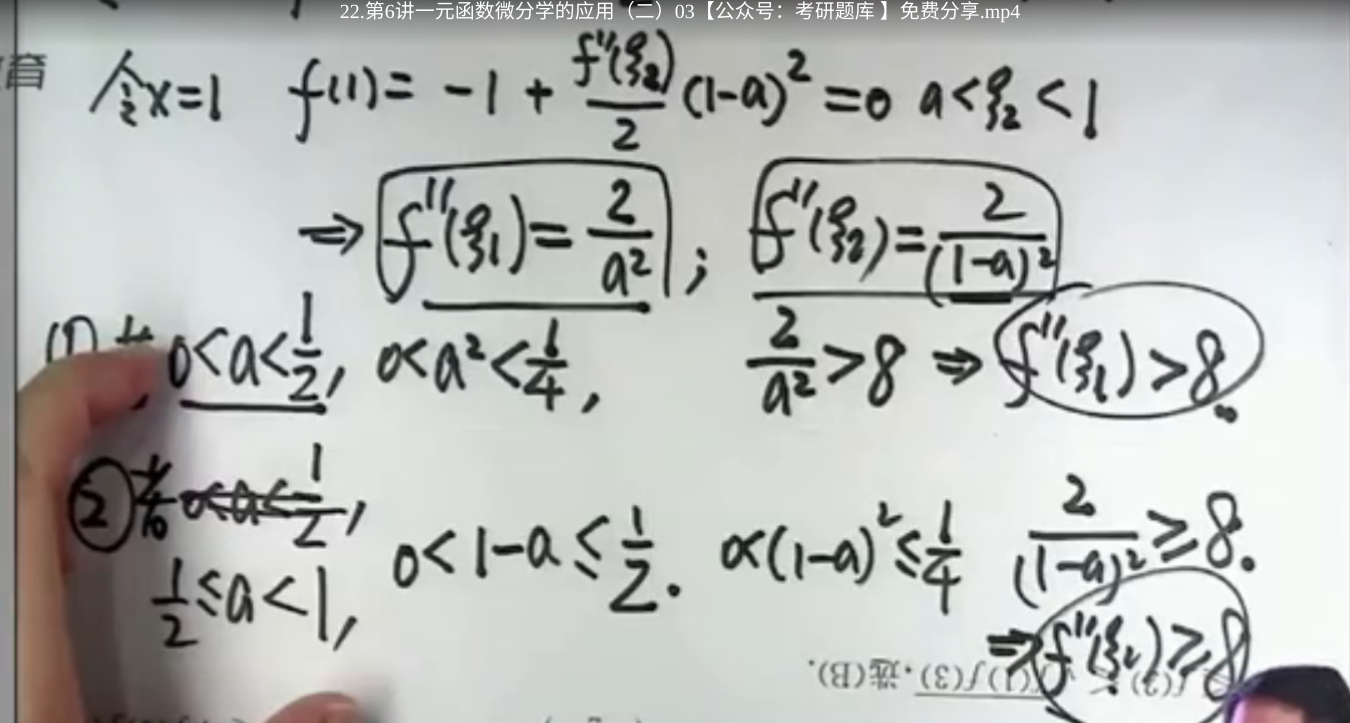 22.第6讲一元函数微分学的应用（二）03【公众号：考研题库 】免费分享.mp4
育
令x=1 f(1)= -1 + f''(ξ₂)/2 (1-a)² =0 a<ξ₂<1
⇒ f''(ξ₁)= 2/a² ; f''(ξ₂)= 2/(1-a)²
(1) 若 0<a<1/2, 0<a²<1/4, 2/a²>8 ⇒ f''(ξ₁)>8.
② 若 0<a<1/2,
1/2≤a<1, 0<1-a≤1/2. 0<(1-a)²≤1/4 2/(1-a)²≥8.
⇒f''(ξ₂)≥8
f(1)f(3),选(B).